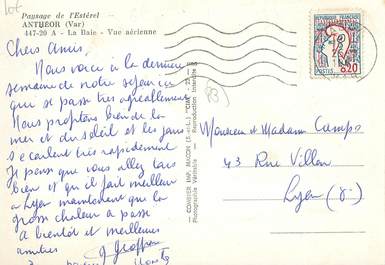 Paysage de l'Estérel
ANTHÉOR (Var)
447-20 A - La Baie - Vue aérienne
Chers Amis,
Nous voici à la dernière
semaine de notre séjour ici
que se passe très agréablement
Nous profitons bien de la
mer et du soleil et les jours
s'écoulent très rapidement
Je pense que vous allez tous
bien et qu'il fait meilleur
à Lyon maintenant que la
grosse chaleur a passé
A bientôt et meilleures
amitiés
COMBIER IMP. MACON
Photographie Véritable - Reproduction Interdite
REPUBLIQUE FRANÇAISE
POSTES
0,20
Monsieur et Madame Campo
43 Rue Villon
Lyon